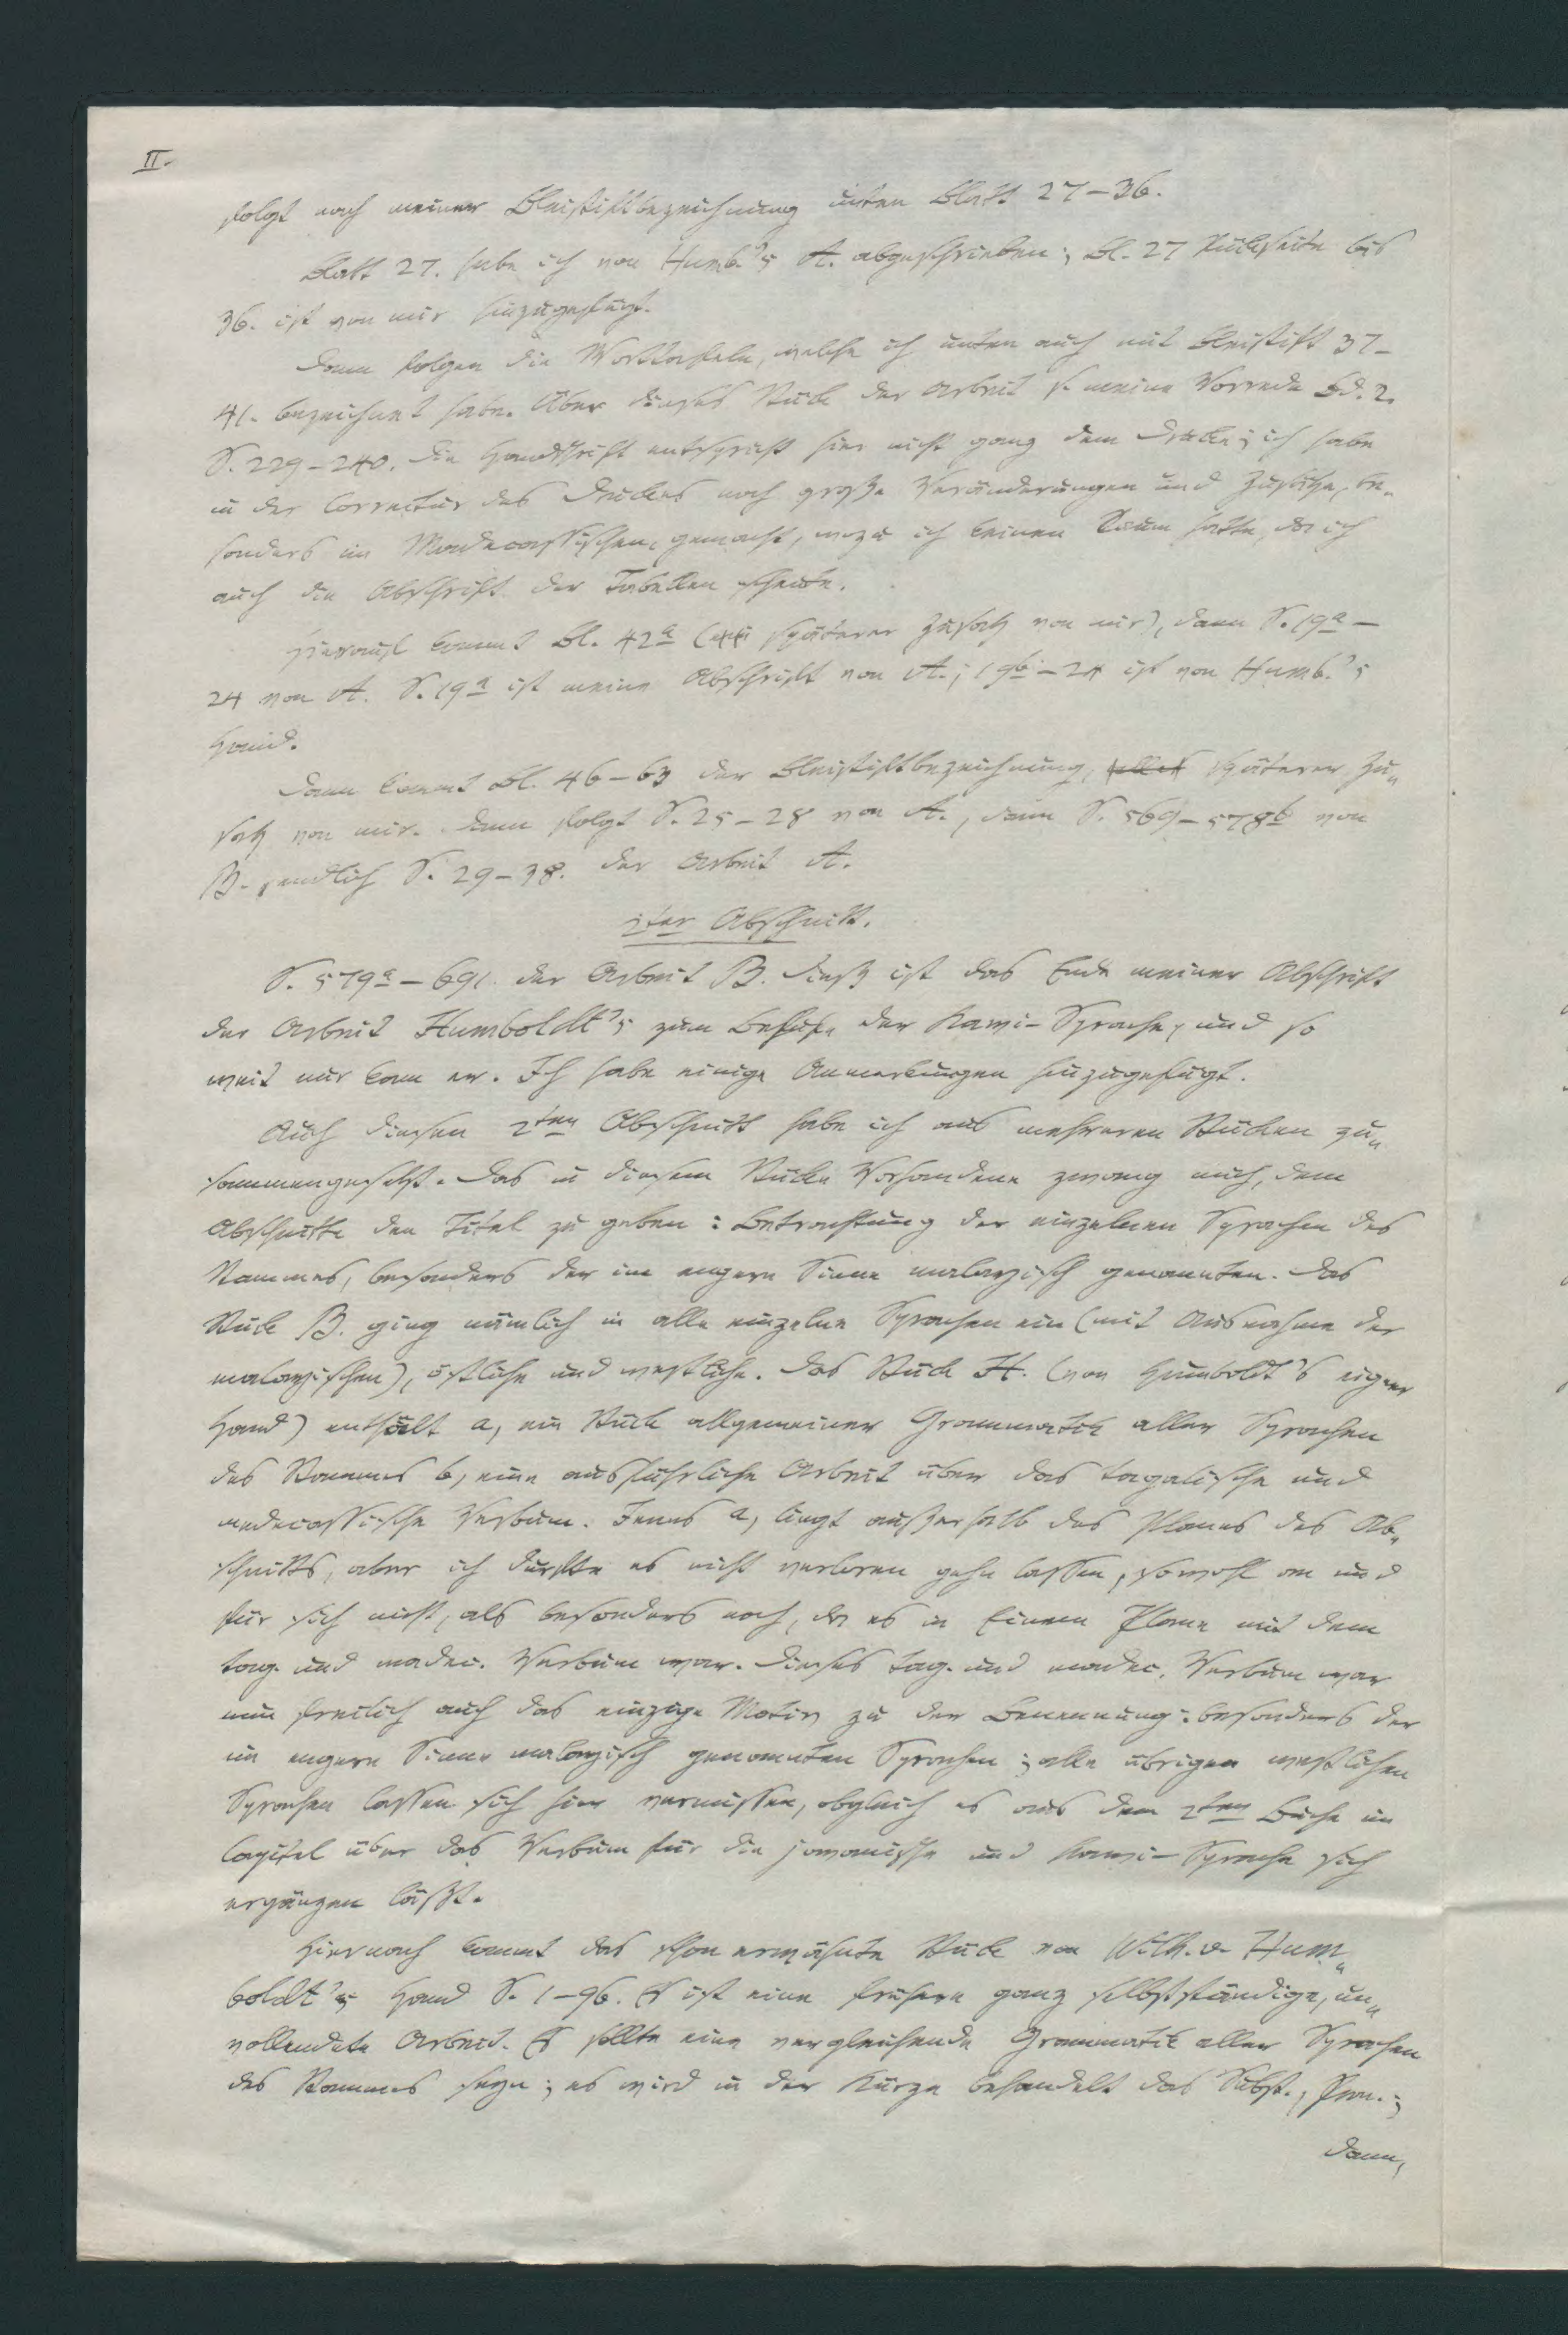 II.
folgt nach meiner Bleistiftbezeichnung unten Blatt 27–36.
Blatt 27. habe ich von Humb.'s A. abgeschrieben; Bl. 27 Rückseite bis
36. ist von mir hinzugefügt.
Dann folgen die Worttafeln, welche ich unten auch mit Bleistift 37–
41. bezeichnet habe. Über dieses Stück der Arbeit s. meine Vorrede Bd. 2.
S. 229–240. Die Handschrift entspricht hier nicht ganz dem Drucke; ich habe
in der Correctur des Druckes noch große Veränderungen und Zusätze, be„
sonders im Madecassischen, gemacht, wozu ich keinen Raum hatte, da ich
auch die Abschrift der Tabellen scheute.
Hierauf kommt Bl. 42a (späterer Zusatz von mir), dann S. 19a–
24 von A. S. 19a ist meine Abschrift von A.; 19b–24 ist von Humb.'s
Hand.
Dann kommt Bl. 46–63 der Bleistiftbezeichnung, späterer Zu„
satz von mir. Dann folgt S. 25–28 von A., dann S. 569–578b von
B. endlich S. 29–38. der Arbeit A.
2ter Abschnitt.
S. 579a–691. der Arbeit B. Dieß ist das Ende meiner Abschrift
der Arbeit Humboldt's zum Behufe der Kawi-Sprache, und so
weit nur kam er. Ich habe einige Anmerkungen hinzugefügt.
Auch diesen 2ten Abschnitt habe ich aus mehreren Stücken zu„
sammengesetzt. Das in diesem Stücke Vorhandene zwang mich, dem
Abschnitte den Titel zu geben: Betrachtung der einzelnen Sprachen des
Stammes, besonders der im engern Sinne malayisch genannten. Das
Stück B. ging nämlich in alle einzelne Sprachen ein (mit Ausnahme der
malayischen), östliche und westliche. Das Stück H. (von Humboldt's eigner
Hand) enthält a, ein Stück allgemeiner Grammatik aller Sprachen
des Stammes b, eine ausführliche Arbeit über das tagalische und
madecassische Verbum. Jenes a, liegt außerhalb des Planes des Ab„
schnitts, aber ich durfte es nicht verloren gehn lassen, sowohl an und
für sich nicht, als besonders noch, da es in Einem Plane mit dem
tag. und madec. Verbum war. Dieses tag. und madec. Verbum war
nun freilich auch das einzige Motiv zu der Benennung: besonders der
im engern Sinne malayisch genannten Sprachen; alle übrigen westlichen
Sprachen lassen sich hier vermissen, obgleich es aus dem 2ten Buche im
Capitel über das Verbum für die javanische und Kawi-Sprache sich
ergänzen läßt.
Hiernach kommt das schon erwähnte Stück von Wilh. v. Hum„
boldt's Hand S. 1–96. Es ist eine frühere ganz selbstständige, un„
vollendete Arbeit. Es sollte eine vergleichende Grammatik aller Sprachen
des Stammes seyn; es wird in der Kürze behandelt das Subst., Pron.;
dann,